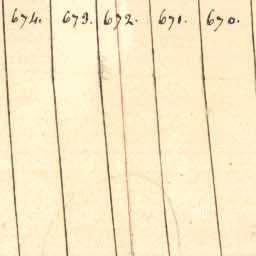 674. 673. 672. 671. 670.